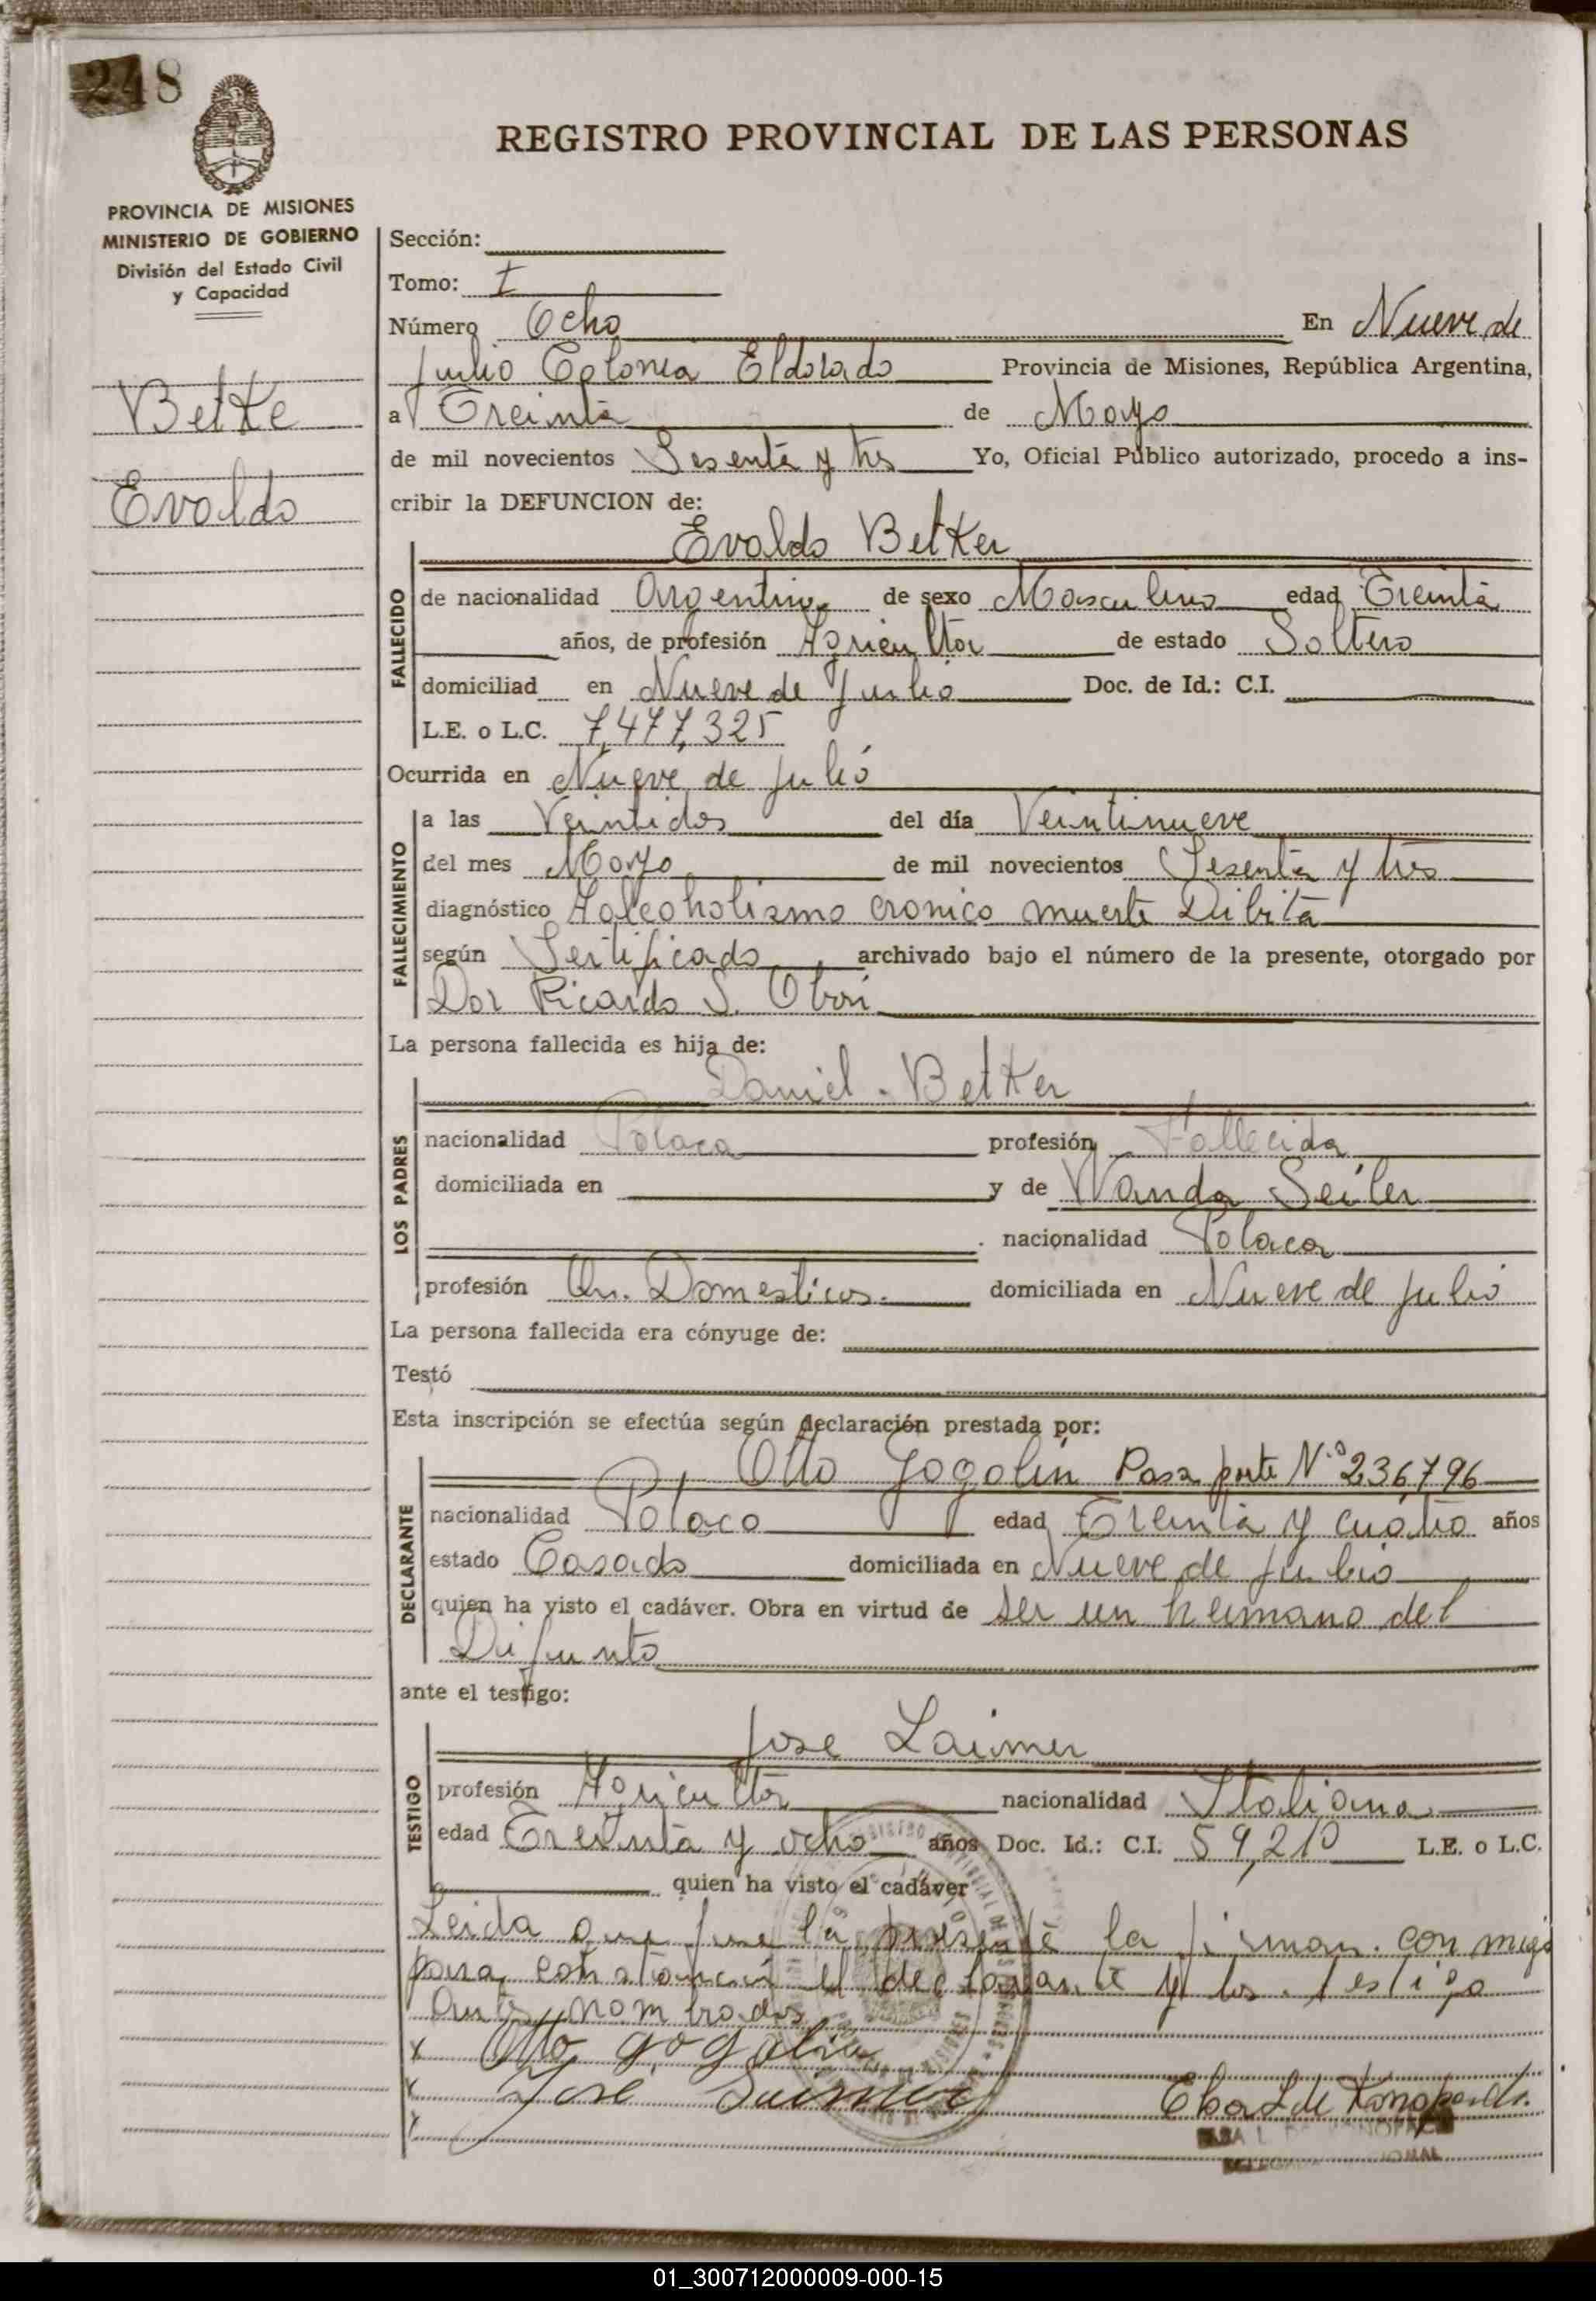 248
REGISTRO PROVINCIAL DE LAS PERSONAS
PROVINCIA DE MISIONES
MINISTERIO DE GOBIERNO
División del Estado Civil
y Capacidad
Betke
Evaldo
Sección:
Tomo: I
Número Ocho En Nueve de
Julio Colonia Eldorado Provincia de Misiones, República Argentina,
a Treinta de Mayo
de mil novecientos Sesenta y tres Yo, Oficial Público autorizado, procedo a ins-
cribir la DEFUNCION de:
Evaldo Betker
FALLECIDO
de nacionalidad Argentina de sexo Masculino edad Treinta
años, de profesión Agricultor de estado Soltero
domiciliad en Nueve de Julio Doc. de Id.: C.I.
L.E. o L.C. 7,477,325
Ocurrida en Nueve de Julio
FALLECIMIENTO
a las Veintidos del día Veintinueve
del mes Mayo de mil novecientos Sesenta y tres
diagnóstico Halcoholismo cronico muerte
según Sertificado archivado bajo el número de la presente, otorgado por
Dor Ricardo S.
La persona fallecida es hija de:
Daniel Betker
LOS PADRES
nacionalidad Polaca profesión Fallecida
domiciliada en y de Wanda Seiler
nacionalidad Polaca
profesión Qu. Domesticos. domiciliada en Nueve de Julio
La persona fallecida era cónyuge de:
Testó
Esta inscripción se efectúa según declaración prestada por:
Otto Gogolin Pasaporte N.º 236,796
DECLARANTE
nacionalidad Polaco edad Treinta y cuatro años
estado Casado domiciliada en Nueve de Julio
quien ha visto el cadáver. Obra en virtud de ser un hermano del
Difunto
ante el testigo:
Jose Laimer
TESTIGO
profesión Agricultor nacionalidad Italiana
edad Treinta y ocho años Doc. Id.: C.I. 59,210 L.E. o L.C.
quien ha visto el cadáver
Leida que fue la presente la firman con migo
para constancia el declarante y los testigo
ante nombrados
x Otto gogolin
x Jose Laimer
Elsa L de Konopacki
01_300712000009-000-15